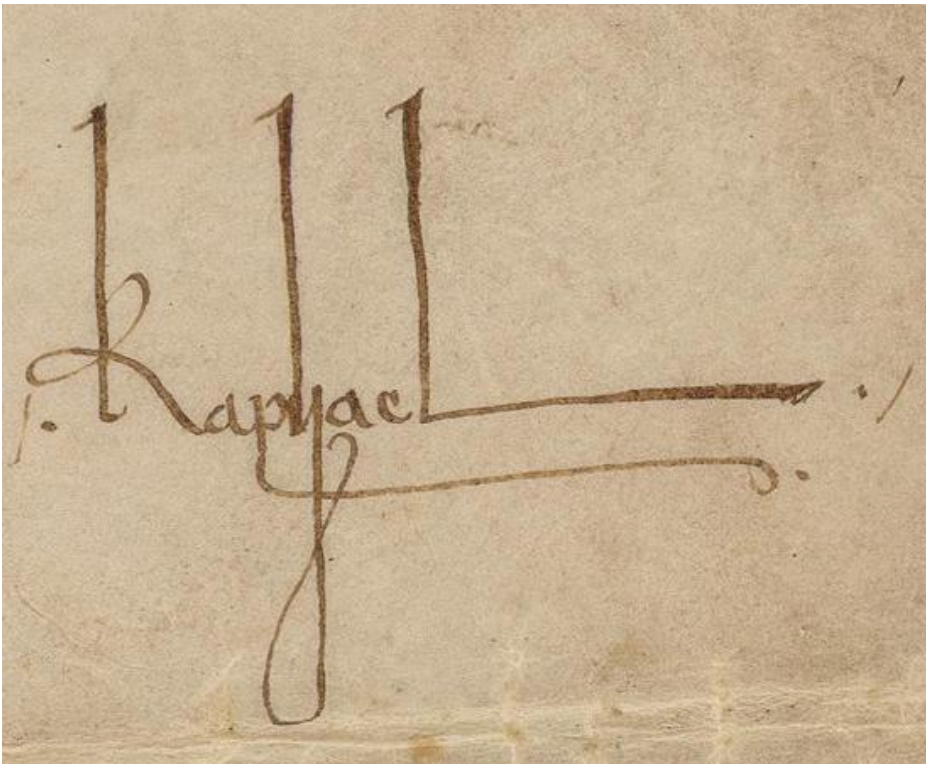 ./. Raphael ./